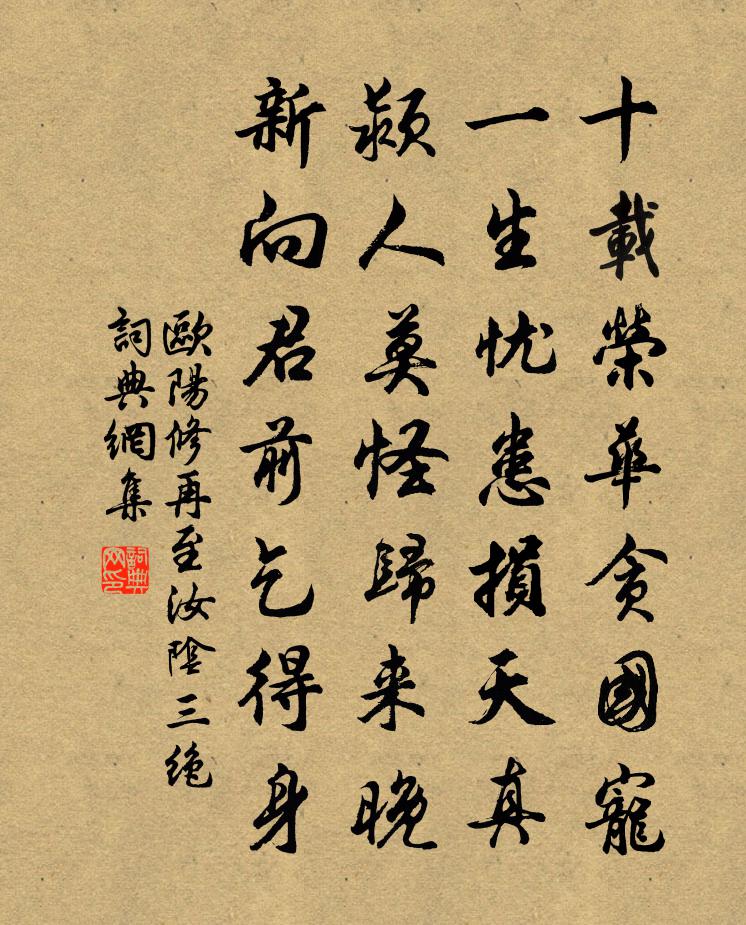 十載榮華貪國寵
一生忧患損天真
颍人莫怪歸来晚
新向君前乞得身
歐陽修再至汝陰三绝
詞典網集
詞典网印